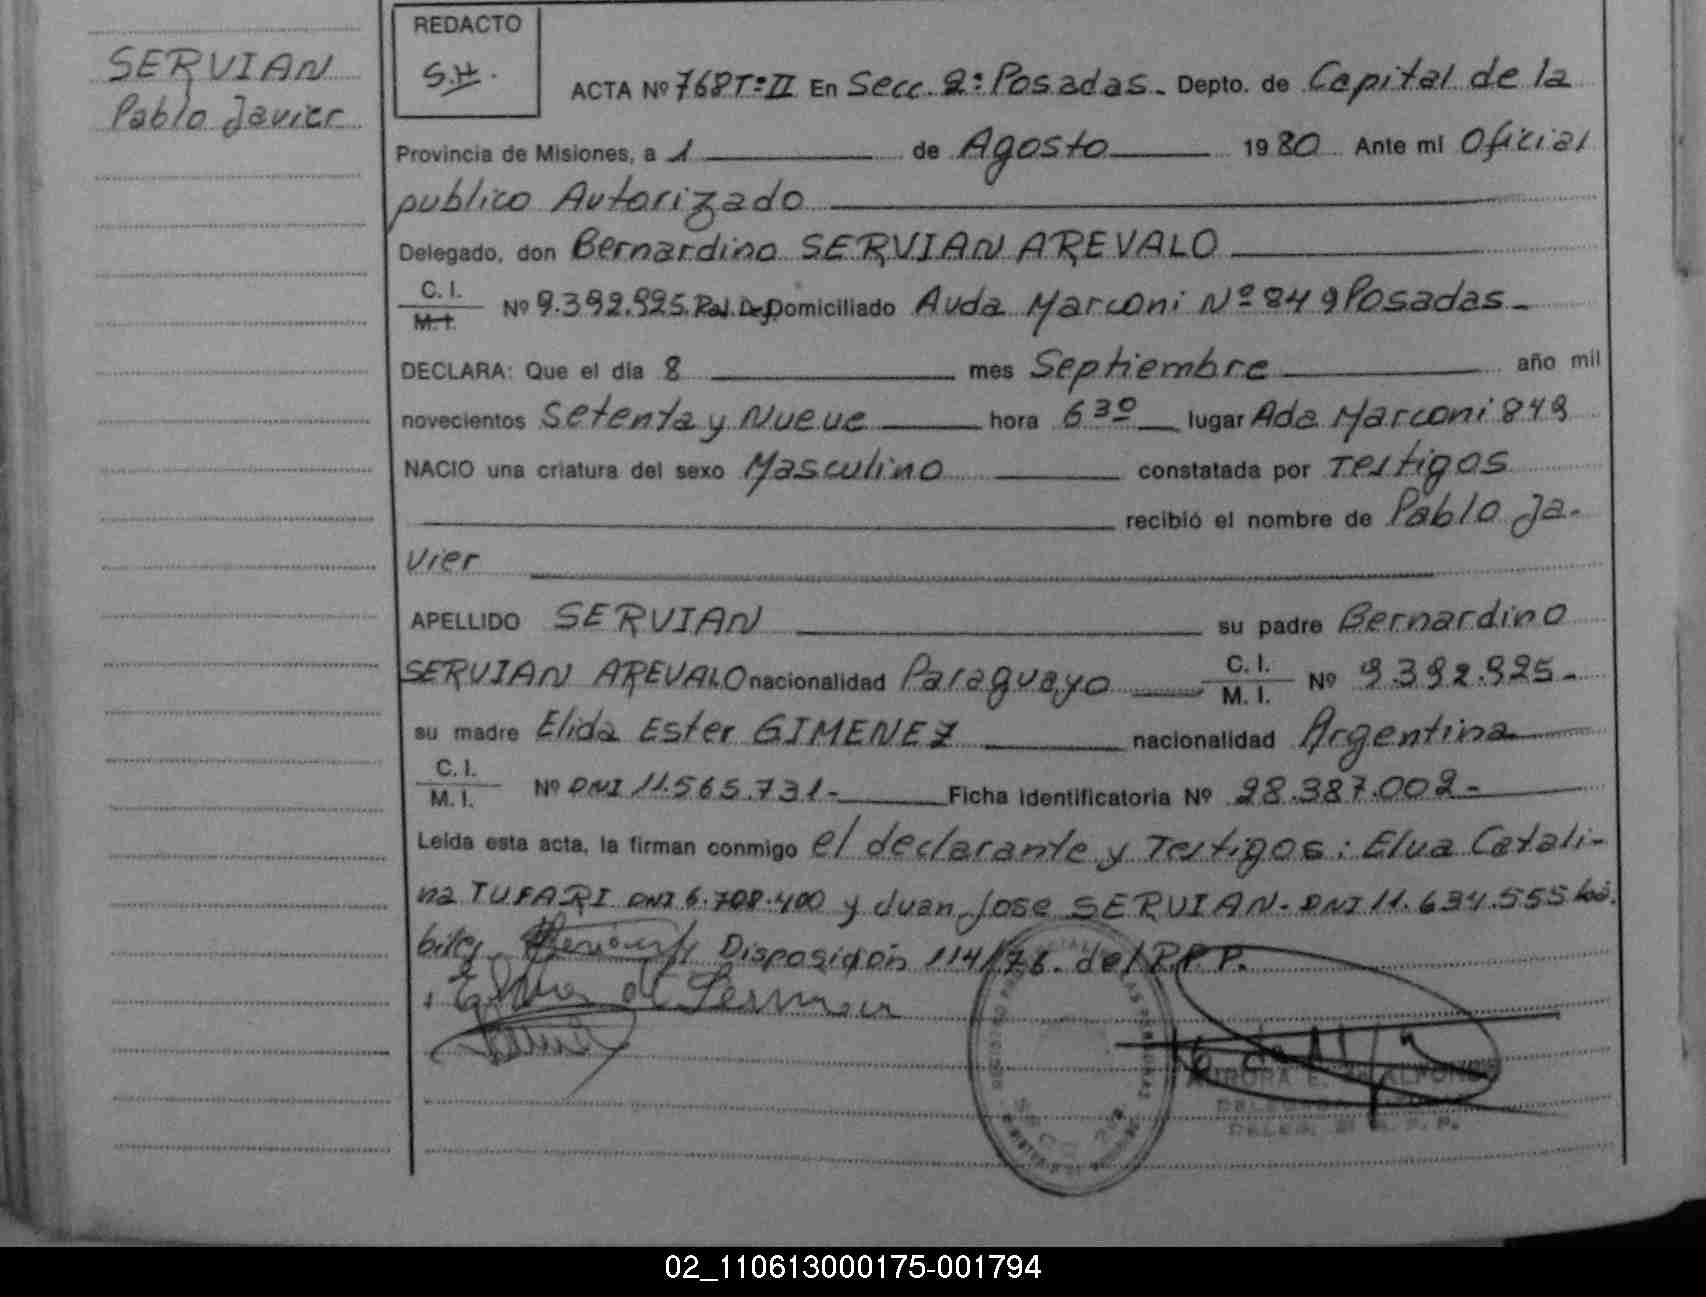 SERVIAN
Pablo Javier
REDACTO
S.H.
ACTA Nº 768 T:II En Secc. 2ª Posadas. Depto. de Capital de la
Provincia de Misiones, a 1 de Agosto 1980 Ante mi Oficial
publico Autorizado
Delegado, don Bernardino SERVIAN AREVALO
C. I.
M. I. Nº 9.392.925. Pol. Dep. Domiciliado Avda Marconi Nº 849 Posadas.
DECLARA: Que el día 8 mes Septiembre año mil
novecientos Setenta y Nueve hora 6 30 lugar Ada Marconi 849
NACIO una criatura del sexo Masculino constatada por Testigos
recibió el nombre de Pablo Ja-
vier
APELLIDO SERVIAN su padre Bernardino
SERVIAN AREVALO nacionalidad Paraguayo C. I. M. I. Nº 9.392.925.
su madre Elida Ester GIMENEZ nacionalidad Argentina
C. I.
M. I. Nº DNI 11.565.731- Ficha Identificatoria Nº 28.387.002-
Leída esta acta, la firman conmigo el declarante y Testigos: Elva Catali-
na TUFARI DNI 6.708.400 y Juan Jose SERVIAN- DNI 11.634.555 há-
biles Disposición 114/76. del R.P.P.
AURORA E.
02_110613000175-001794